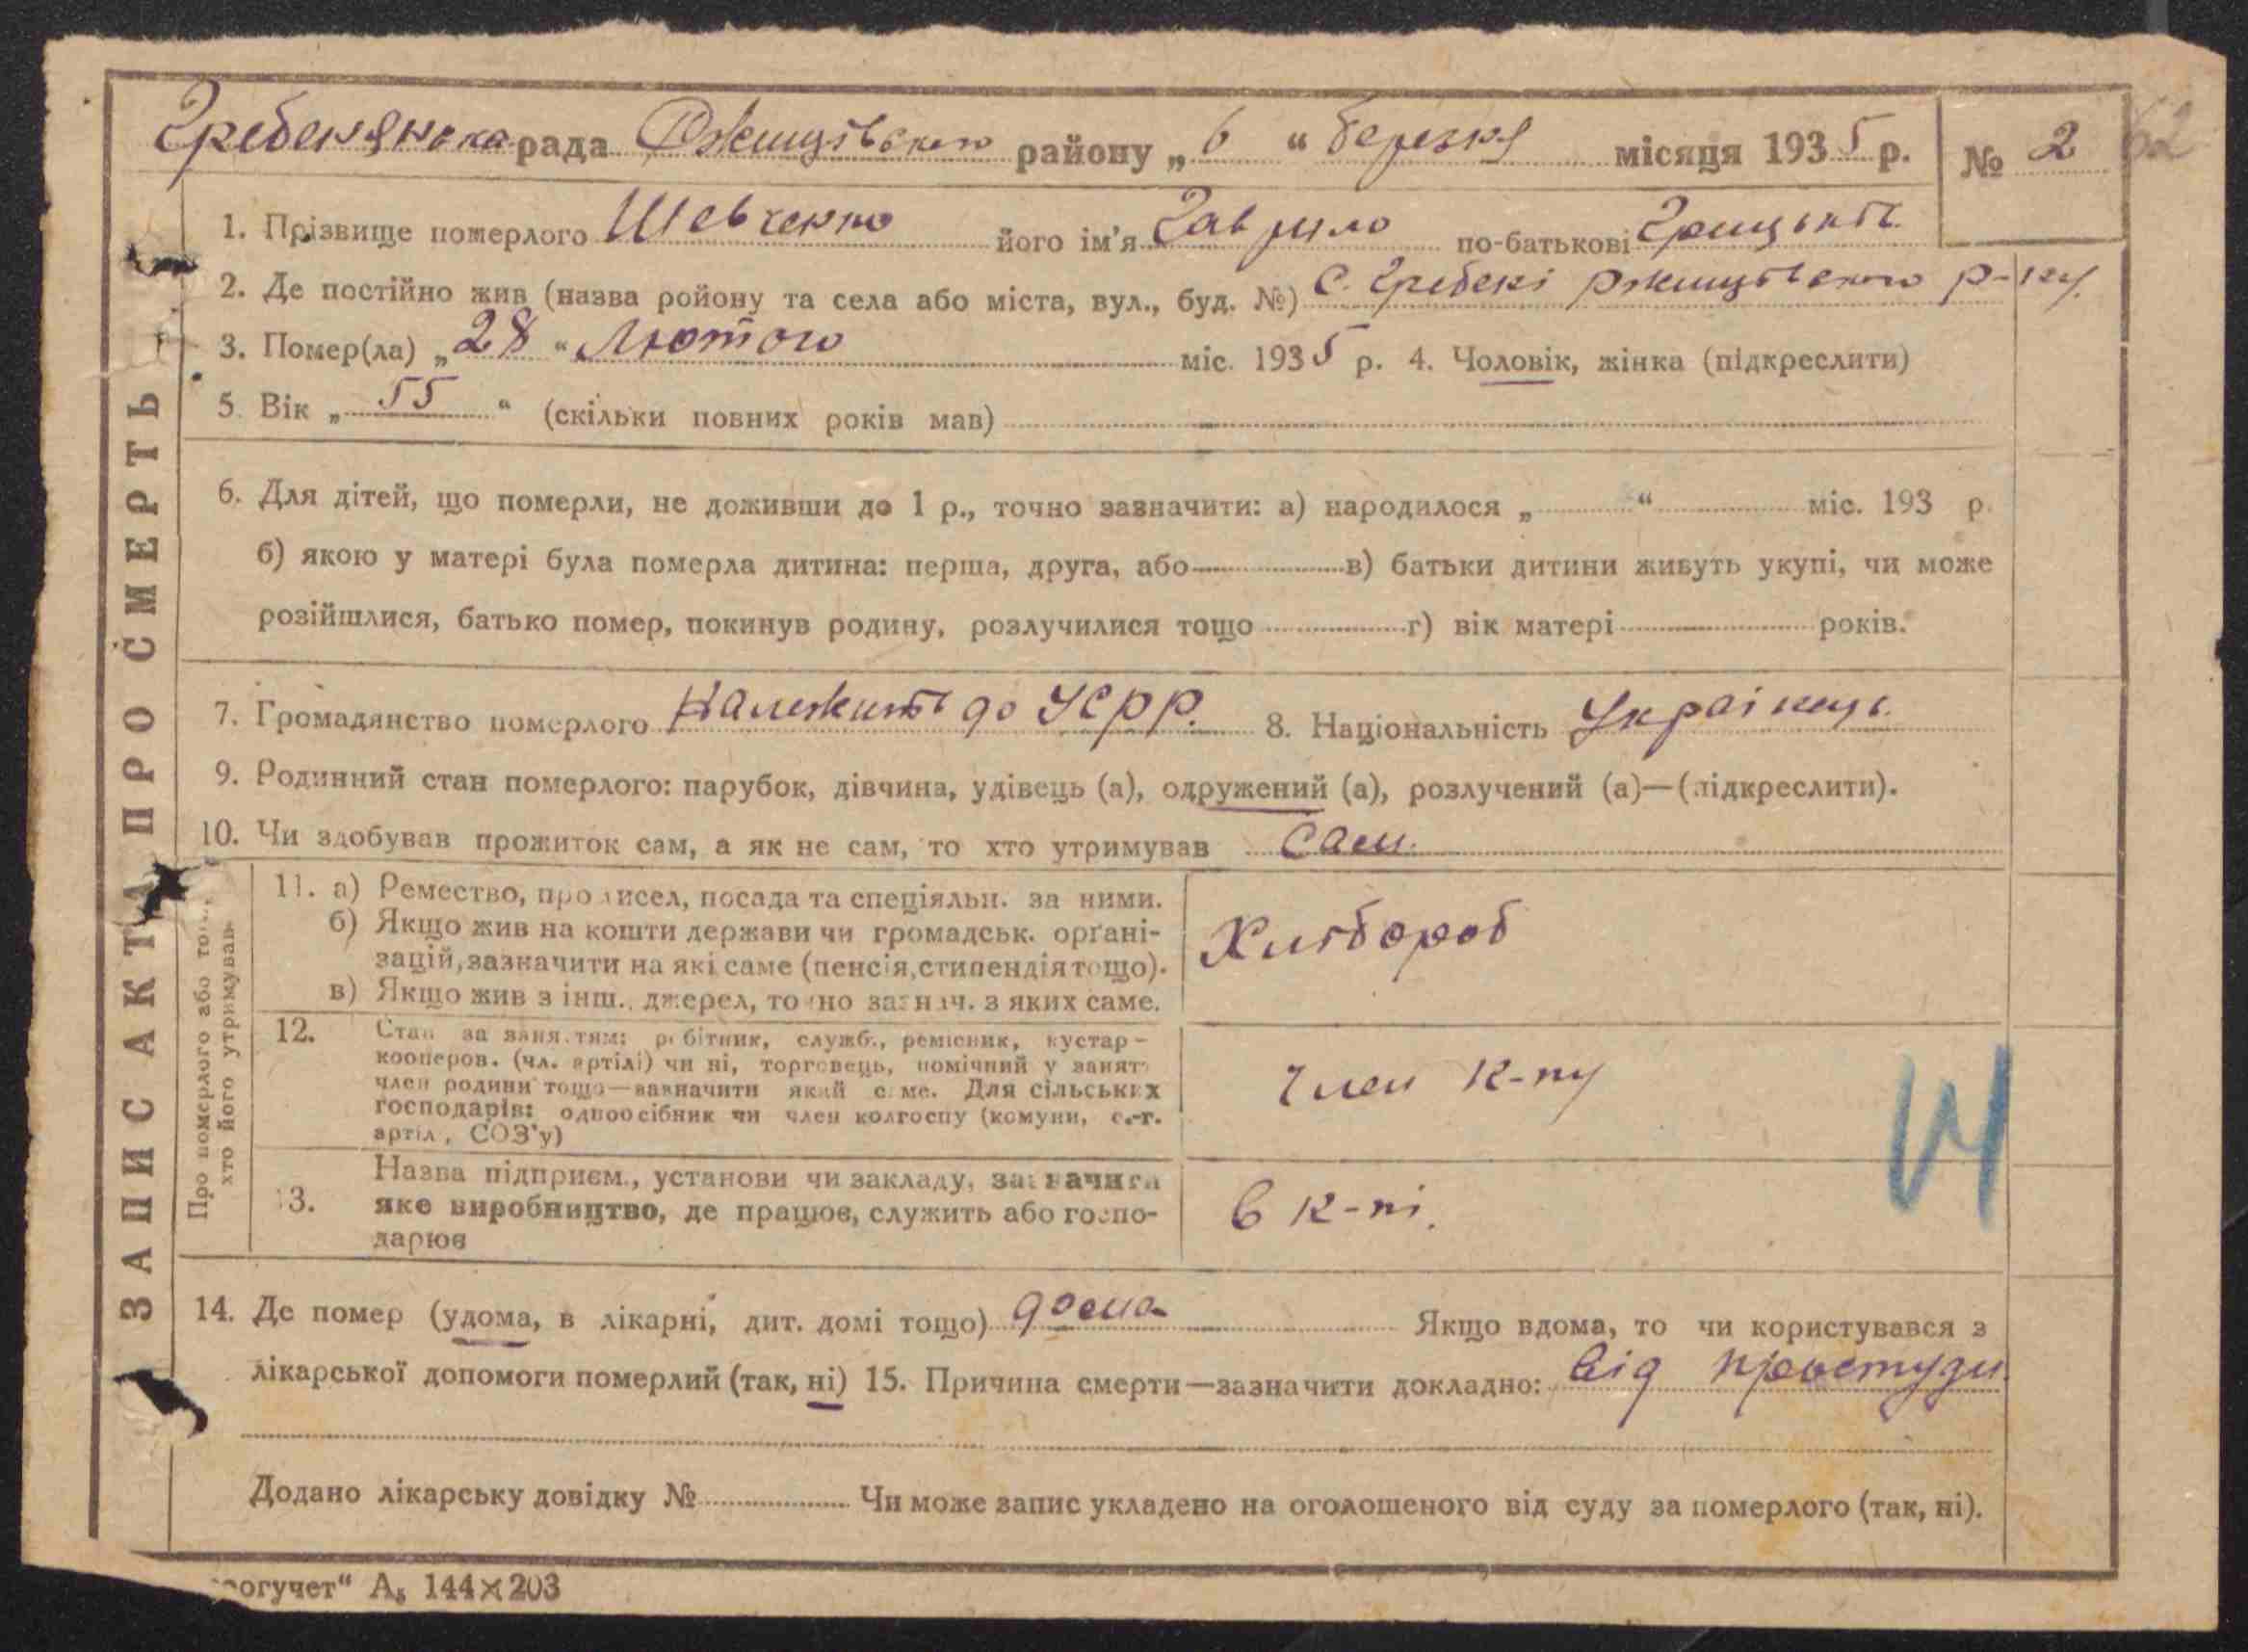 Гребенянська рада Ржищівського району „ 6 “ березня місяця 1935 р. № 2 62
1. Прізвище померлого Шевченко його ім'я Гаврило по-батькові
2. Де постійно жив (назва ройону та села або міста, вул., буд. №) с. Гребені Ржищівського р-ну.
3. Помер(ла) „ 28 “ Лютого міс. 1935 р. 4. Чоловік, жінка (підкреслити)
5. Вік „ 55 “ (скільки повних років мав)
6. Для дітей, що померли, не доживши до 1 р., точно зазначити: а) народилося „ “ міс. 193 р.
б) якою у матері була померла дитина: перша, друга, або в) батьки дитини живуть укупі, чи може
розійшлися, батько помер, покинув родину, розлучилися тощо г) вік матері років.
7. Громадянство померлого Належить до УСРР. 8. Національність Українець.
9. Родинний стан померлого: парубок, дівчина, удівець (а), одружений (а), розлучений (а)—(підкреслити).
10. Чи здобував прожиток сам, а як не сам, то хто утримував сам.
11. а) Ремество, промисел, посада та спеціяльн. за ними.
б) Якщо жив на кошти держави чи громадськ. орґані-
зацій, зазначити на які саме (пенсія, стипендія тощо).
в) Якщо жив з інш. джерел, точно зазнач. з яких саме.
Хлібороб
12. Стан за заняттям: робітник, служб., ремісник, кустар-
кооперов. (чл. артілі) чи ні, торговець, помічний у занят.
член родини тощо—зазначити який саме. Для сільських
господарів: одноосібник чи член колгоспу (комуни, с.-г.
артіл., СОЗ'у)
член к-пу
13. Назва підприєм., установи чи закладу, зазначити
яке виробництво, де працює, служить або госпо-
дарює
в к-пі.
14. Де помер (удома, в лікарні, дит. домі тощо) дома Якщо вдома, то чи користувався з
лікарської допомоги померлий (так, ні) 15. Причина смерти—зазначити докладно: від простуди.
Додано лікарську довідку № Чи може запис укладено на оголошеного від суду за померлого (так, ні).
огучет“ А5 144×203
ЗАПИС АКТА ПРО СМЕРТЬ
Про померлого або того,
хто його утримував